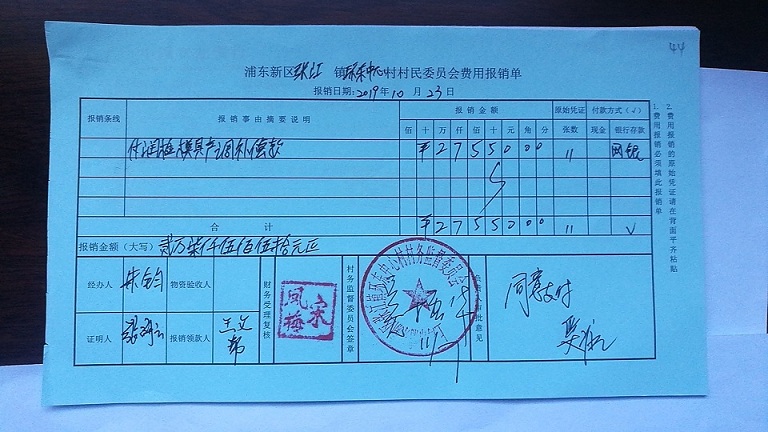 44
浦东新区张江镇环东中心村村民委员会费用报销单
报销日期:2019年10月23日
报销条线 报销事由摘要说明 报销金额 原始凭证 付款方式(√)
佰 十 万 仟 佰 十 元 角 分 张数 现金 银行存款
付 模具产调补偿款 ¥ 2 7 5 5 0 0 0 11 网银
合计 ¥ 2 7 5 5 0 0 0 11 √
报销金额(大写) 贰万柒仟伍佰伍拾元正
经办人 物资验收人 财务受理复核 宋凤梅 村务监督委员会签章 审批意见 同意支付
证明人 报销领款人
环东中心村村务监督委员会
1.费用报销必须填此报销单
2.费用报销的原始凭证请在背面平齐粘贴